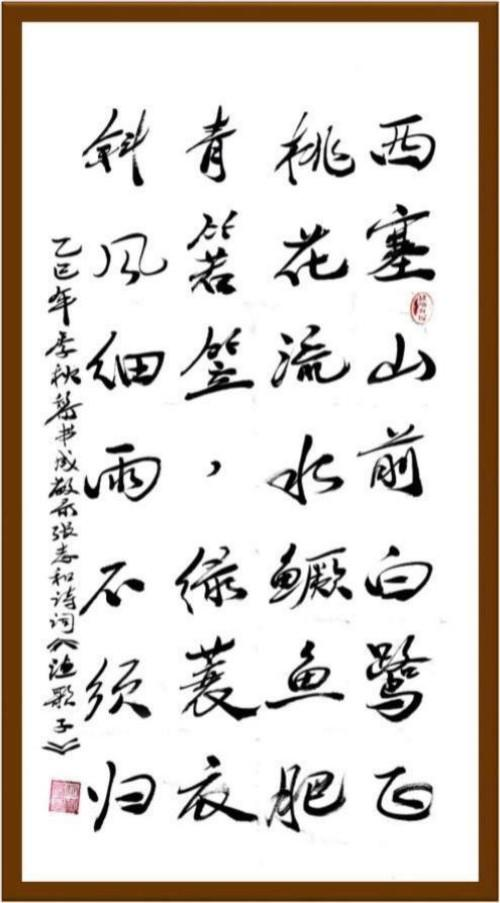 西塞山前白鹭飞
桃花流水鳜鱼肥
青箬笠，绿蓑衣
斜风细雨不须归
乙巳年季秋书张志和诗词《渔歌子》